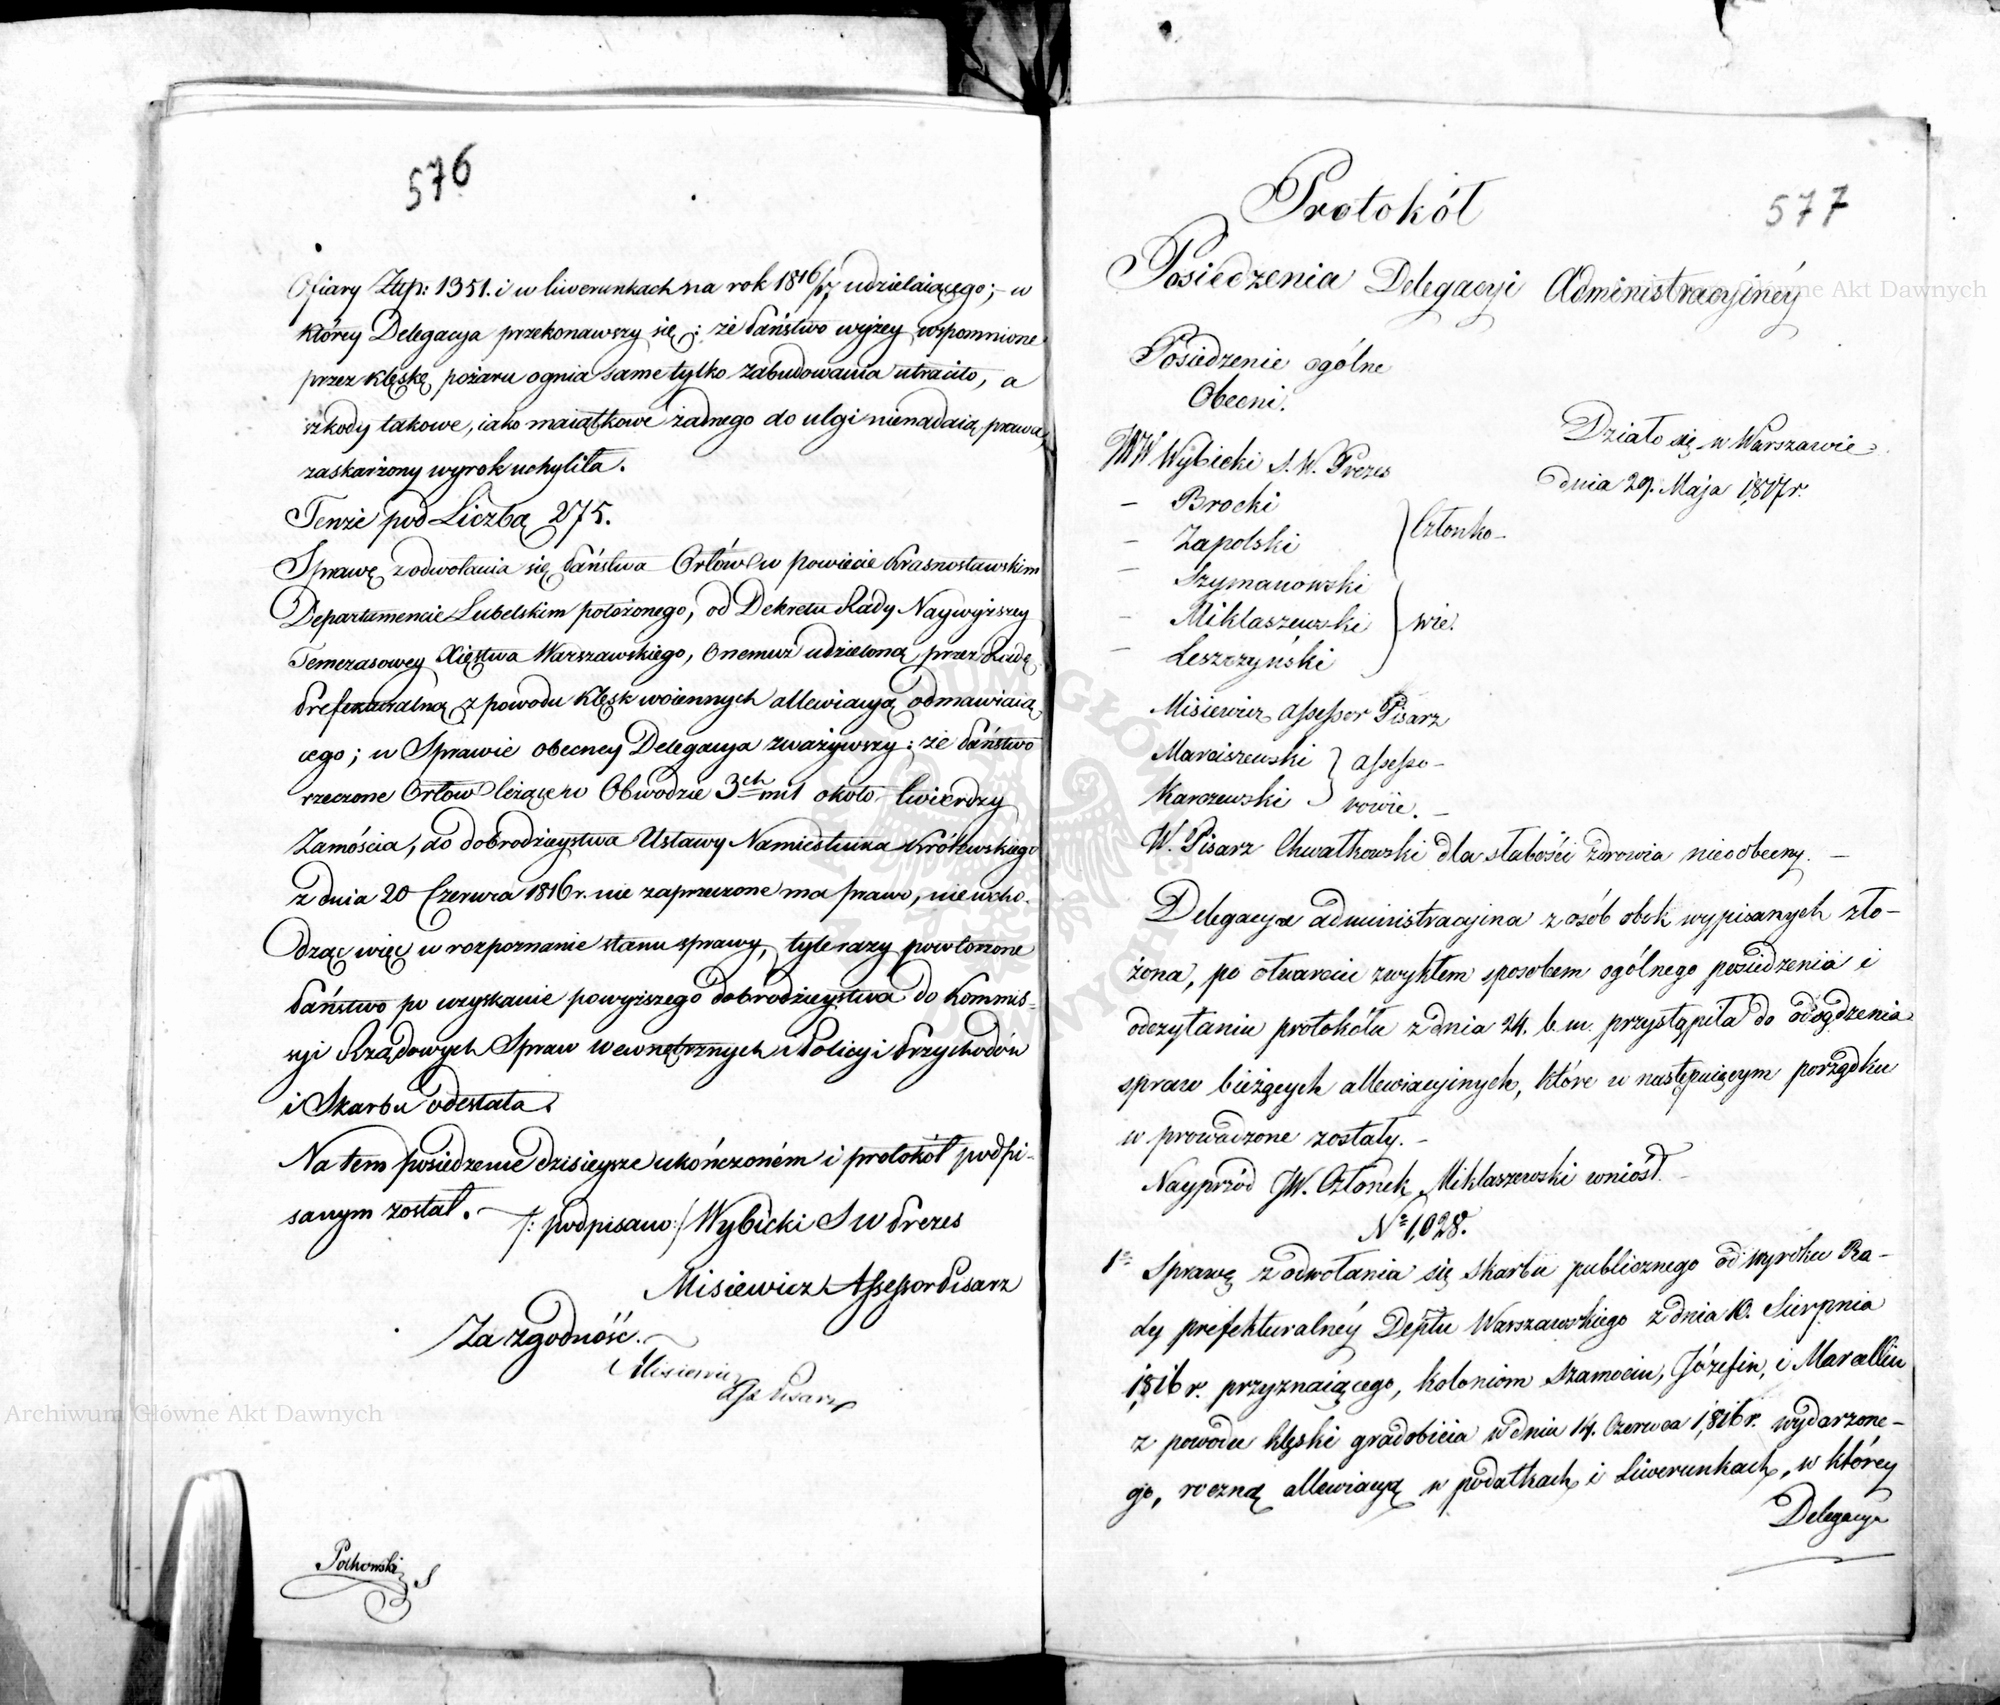 576
Ofiary Złłp: 1351. i w liwerunkach na rok 1816/17 udzielaiącego; – w
którey Delegacya przekonawszy się: że Państwo wyżey wspomnione
przez klęskę pożaru ognia same tylko zabudowania utraciło, a
szkody takowe, iako maiątkowe żadnego do ulgi nienadaią prawa,
zaskarżony wyrok uchyliła.
Tenże pod Liczbą 275.
Sprawę z odwołania się Państwa Orłów w powiecie Krasnostawskim
Departamencie Lubelskim położonego, od Dekretu Rady Naywyższey
Temczasowey Xięstwa Warszawskiego, onemuż udzieloną przez Radę
Prefekturalną z powodu klęsk woiennych allewiacyą odmawiaią
cego; w Sprawie obecney Delegacya zważywszy: że Państwo
rzeczone Orłów leżące w Obwodzie 3ch mil około twierdzy
Zamościa, do dobrodzieystwa Ustawy Namiestnika Królewskiego
z dnia 20 Czerwca 1816 r. nie zaprzeczone ma prawo, nie wcho-
dząc więc w rozpoznanie stanu sprawy, tyle razy powtorzone
Państwo po uzyskanie powyższego dobrodzieystwa do Kommis-
syi Rządowych Spraw wewnętrznych i Policyi Przychodów
i Skarbu odesłała.
Na tem posiedzenie dzisieysze ukończoném i protokół podpi-
sanym został. – /: podpisano :/ Wybicki S W Prezes
Misiewicz Assessor Pisarz
Za zgodność.
Misiewicz
Ass Pisarz
Pothowski S
577
Protokół
Posiedzenia Delegacyi Administracyinéy
Posiedzenie ogólne
Obecni.
Działo się w Warszawie
dnia 29. Maja 1817 r.
JWW Wybicki S. W. Prezes
– Brocki
– Zapolski } Członko-
– Szymanowski
– Miklaszewski } wie.
– Leszczyński
Misiewicz Assessor Pisarz
Marciszewski } Assesso-
Karczewski } rowie. –
W. Pisarz Chwałkowski dla słabości zdrowia nieobecny. –
Delegacya administracyina z osób obok wypisanych zło-
żona, po otwarciu zwykłem sposobem ogólnego posiedzenia i
odczytaniu protokółu z dnia 24. b. m. przystąpiła do osądzenia
spraw bieżących allewiacyinych, które w następuiącym porządku
wprowadzone zostały. –
Nayprzód JW. Członek Miklaszewski wniósł. –
No 1,028.
1o Sprawę z odwołania się Skarbu publicznego od wyroku Ra-
dy prefekturalnéy Deptu Warszawskiego z dnia 10. Sierpnia
1816 r. przyznaiącego, koloniom Szamocin, Józefin, i Marcellin
z powodu klęski gradobicia w dniu 14. Czerwca 1816 r. wydarzone-
go, roczną allewiacyą w podatkach i Liwerunkach, w którey
Delegacya
Archiwum Główne Akt Dawnych